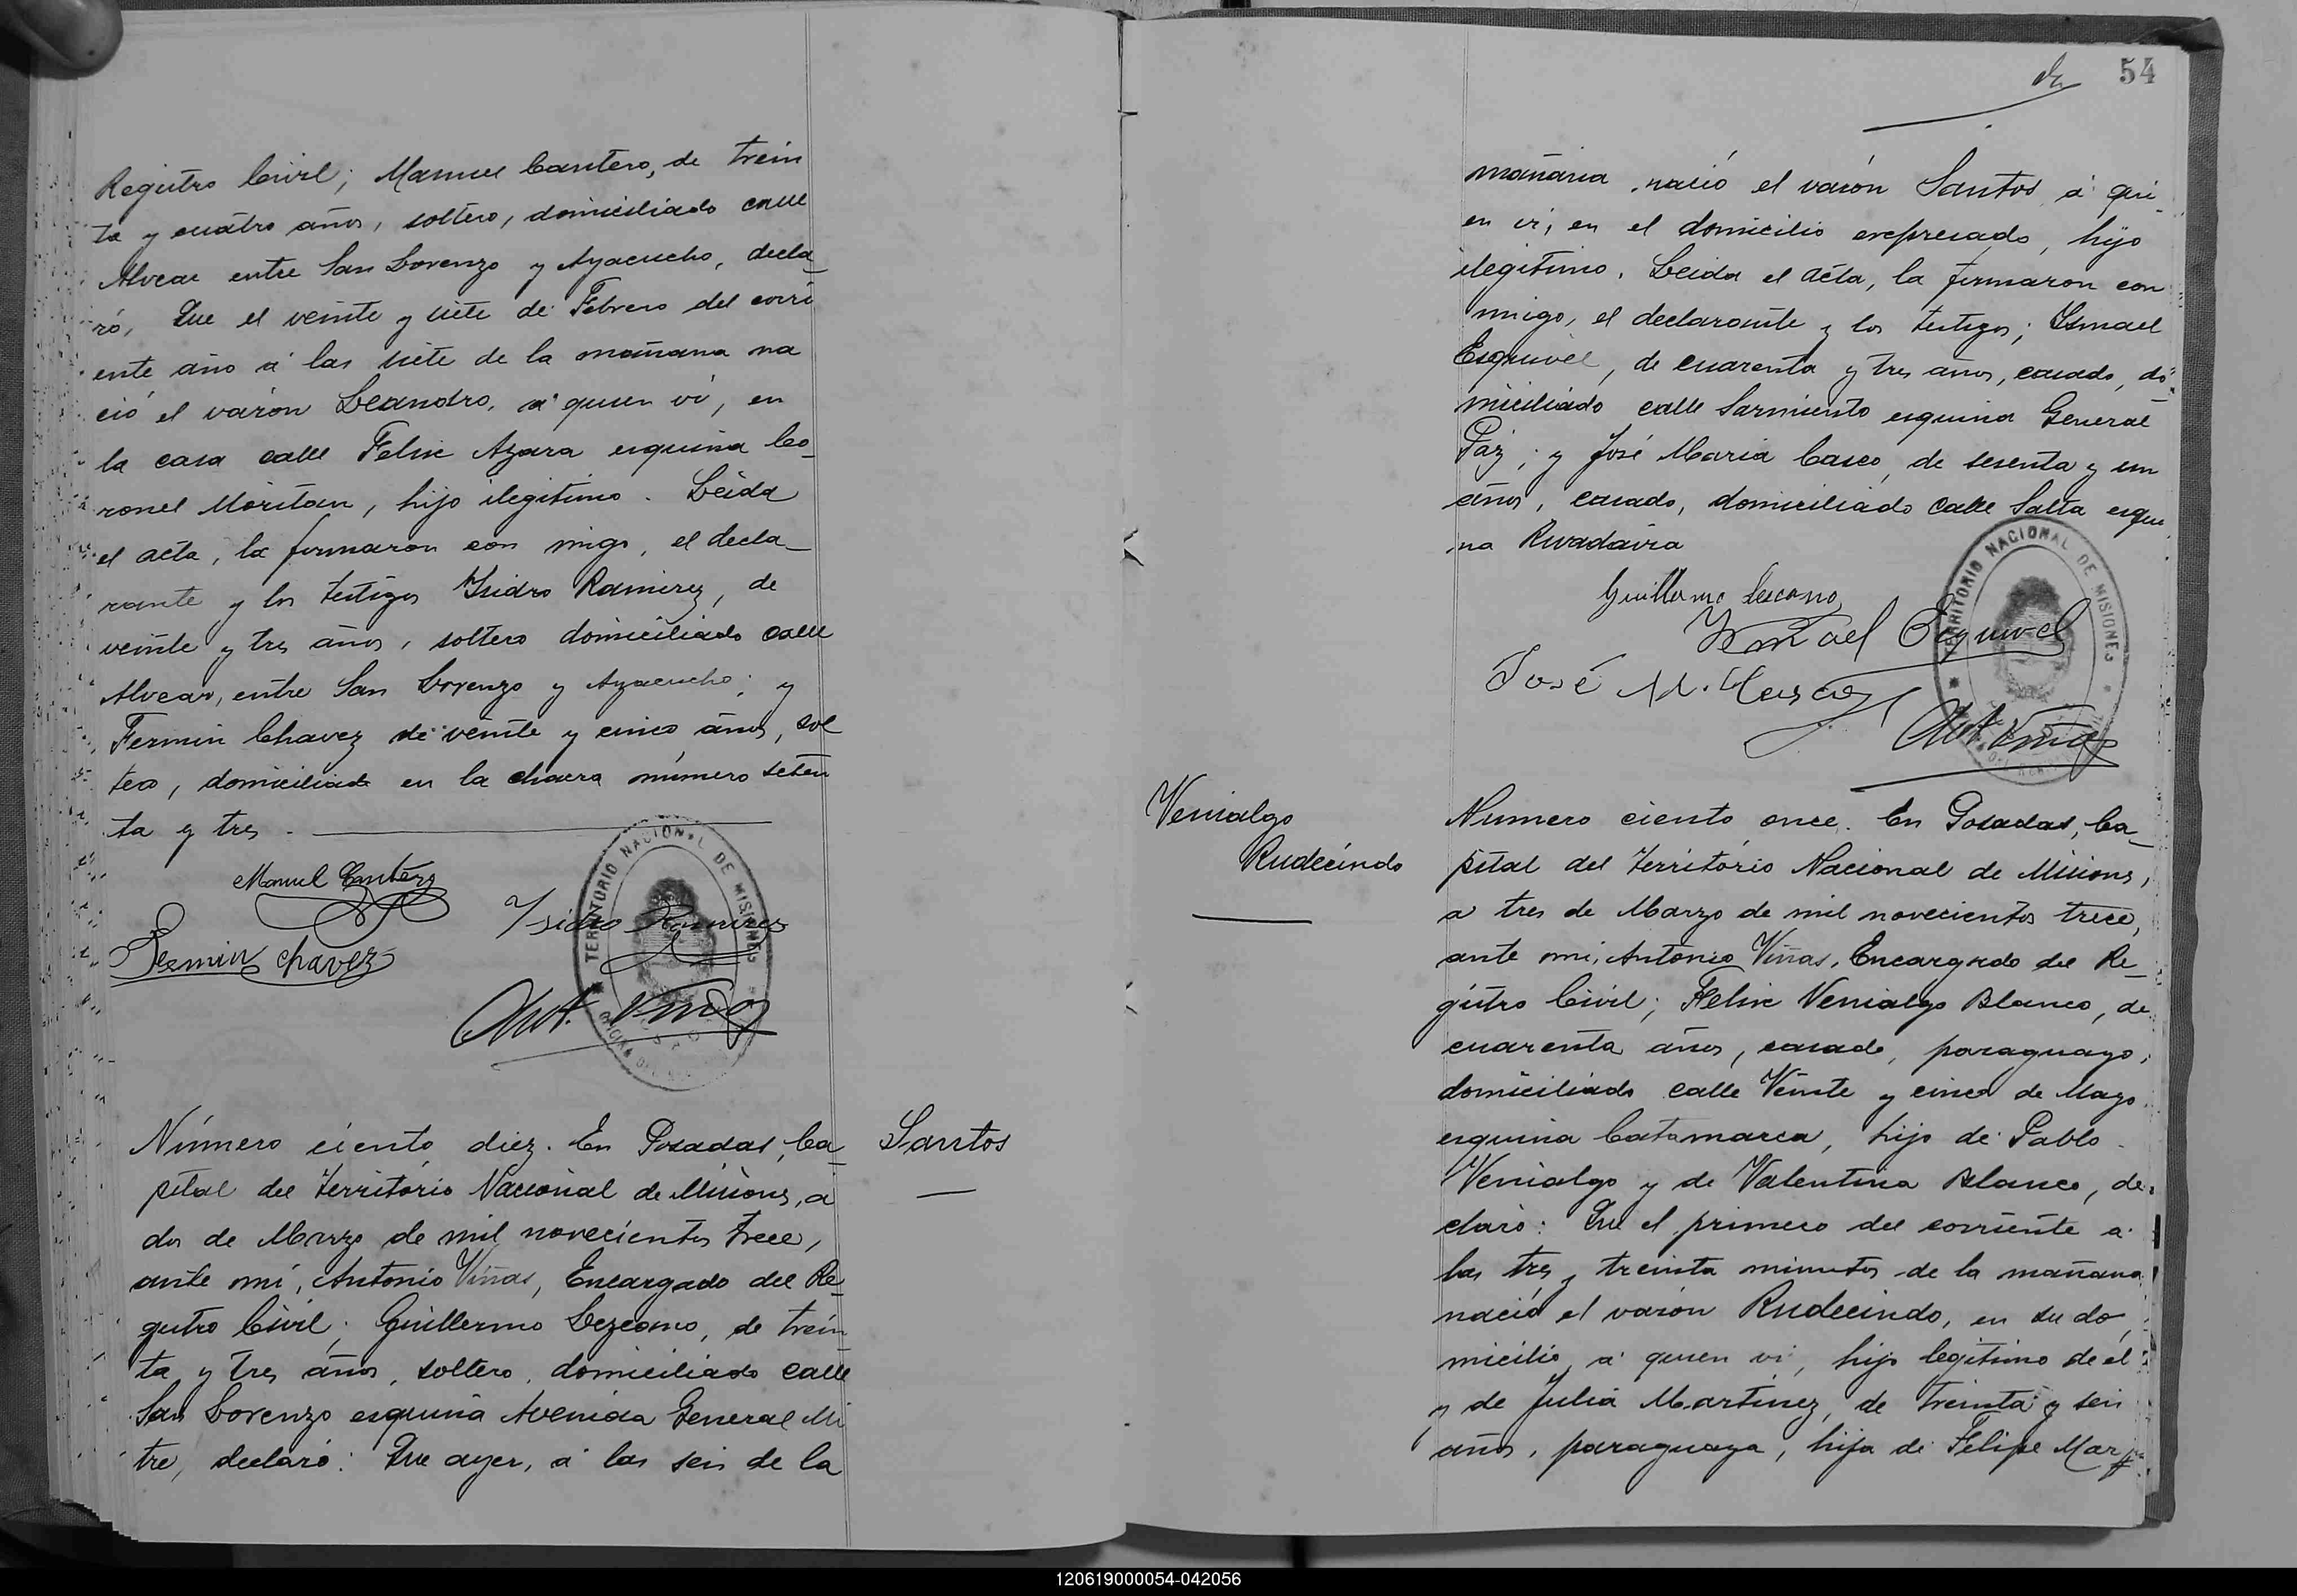 Registro Civil; Manuel Cantero, de trein
ta y cuatro años, soltero, domiciliado calle
Alvear entre San Lorenzo y Ayacucho, decla_
ró, Que el veinte y siete de Febrero del corri
ente año á las siete de la mañana na
ció el varón Leandro, á quien ví, en
la casa calle Felix Azara esquina Co_
ronel Moritan, hijo ilegitimo. Leida
el acta, la firmaron con migo, el decla_
rante y los testigos Isidro Ramirez, de
veinte y tres años, soltero domiciliado calle
Alvear, entre San Lorenzo y Ayacucho; y
Fermin Chavez de veinte y cinco años, sol
tero, domiciliado en la chacra número seten
ta y tres.
Manuel Cantero
Ysidro Ramirez
Fermin Chavez
Ant. Viñas
TERRITORIO NACIONAL DE MISIONES
Número ciento diez. En Posadas, Ca_
pital del Territorio Nacional de Misiones, a
dos de Marzo de mil novecientos trece,
ante mí, Antonio Viñas, Encargado del Re_
gistro Civil; Guillermo Lezcano, de trein
ta y tres años, soltero, domiciliado calle
San Lorenzo esquina Avenida General Mi
tre, declaró: Que ayer, á las seis de la
Santos
54
mañana nació el varón Santos á qui_
en ví, en el domicilio expresado, hijo
ilegitimo. Leida el acta, la firmaron con
migo, el declarante y los testigos; Ismael
Esquivel, de cuarenta y tres años, casado, do_
miciliado calle Sarmiento esquina General
Paz; y José Maria Casco, de sesenta y un
años, casado, domiciliado calle Salta esqui
na Rivadavia
Guillermo Lescano
Ismael Esquivel
José M. Casco
Ant. Viñas
TERRITORIO NACIONAL DE MISIONES
Venialgo
Rudecindo
Numero ciento once. En Posadas, Ca_
pital del Territorio Nacional de Misiones,
a tres de Marzo de mil novecientos trece,
ante mi, Antonio Viñas, Encargado del Re_
gistro Civil; Felix Venialgo Blanco, de
cuarenta años, casado, paraguayo,
domiciliado calle Veinte y cinco de Mayo
esquina Catamarca, hijo de Pablo
Venialgo y de Valentina Blanco, de_
claró: Que el primero del corriente a
las tres y treinta minutos de la mañana
nació el varón Rudecindo, en su do_
micilio, á quien ví, hijo legitimo de el
y de Julia Martinez, de treinta y seis
años, paraguaya, hija de Felipe Mar
120619000054-042056